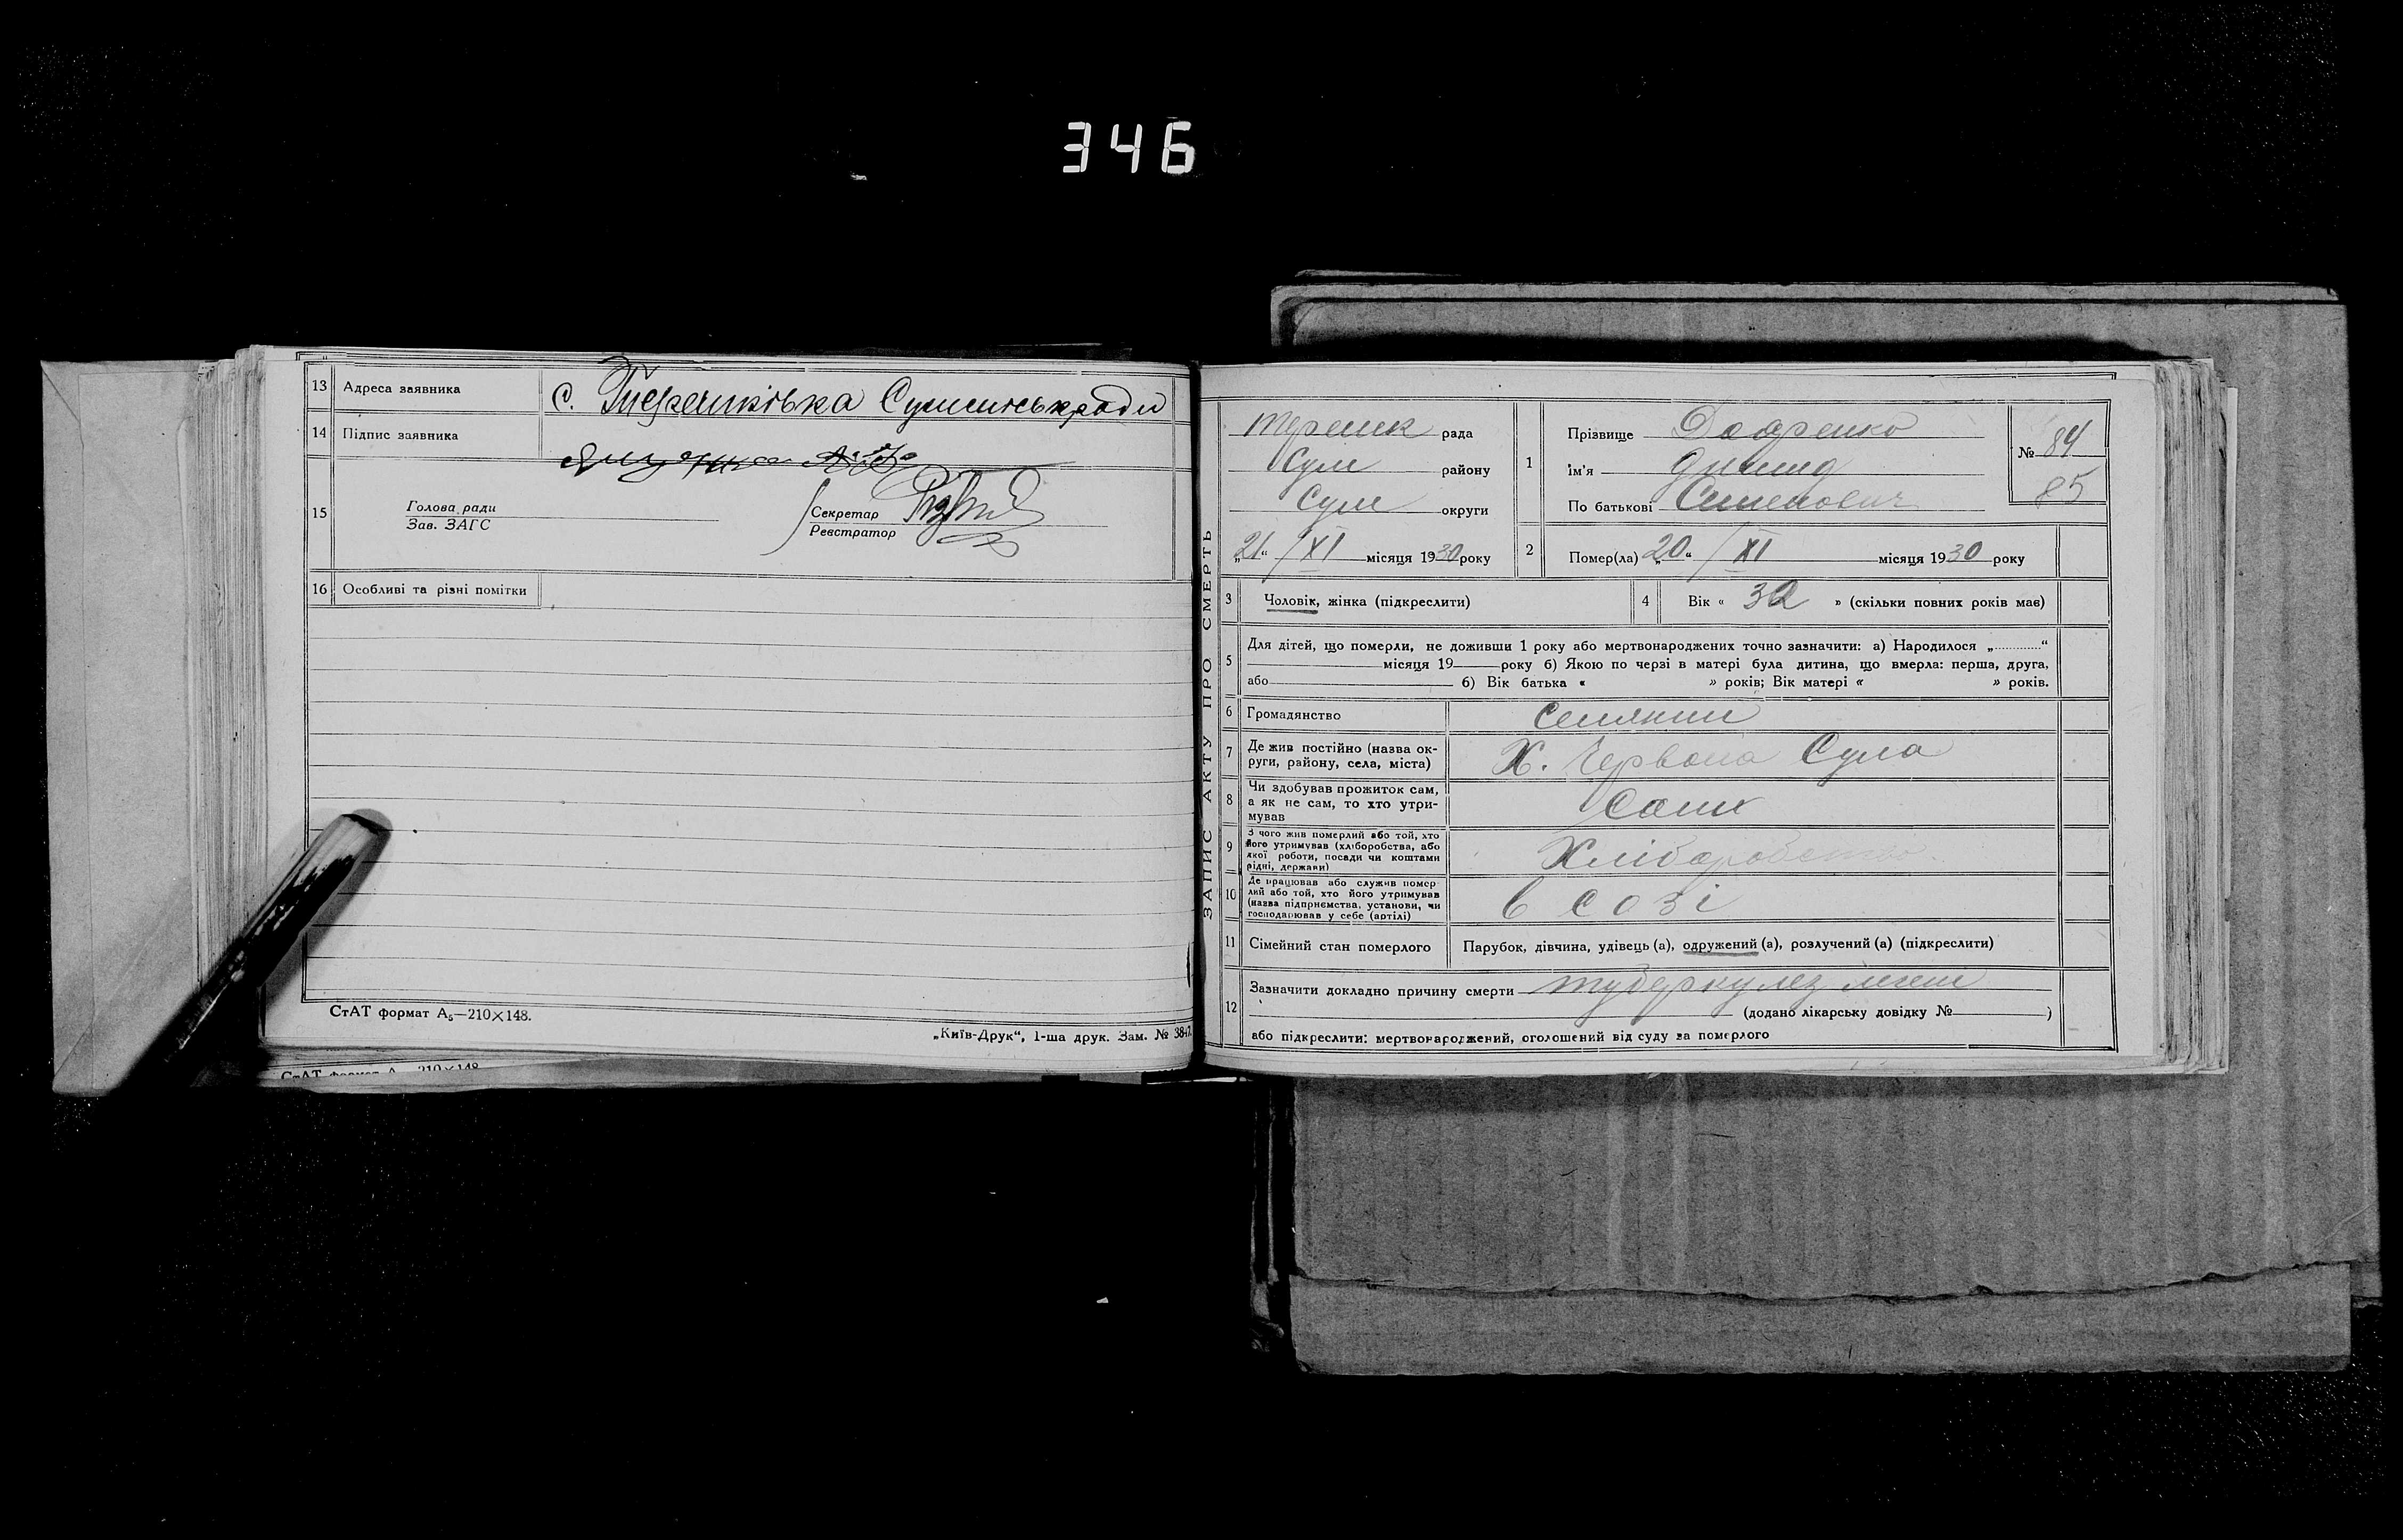 346
13 Адреса заявника с. Терешківка Сумськ ради
14 Підпис заявника
15 Голова ради
Зав. ЗАГС
Секретар
Реєстратор
16 Особливі та різні помітки
СтАТ формат А₅—210×148.
„Київ-Друк“, 1-ша друк. Зам. № 3847.
СтАТ формат А 210×148
ЗАПИС АКТУ ПРО СМЕРТЬ
Терешк рада
Сум району
Сум округи
„21“ / XI місяця 1930 року
1 Прізвище
Ім'я
По батькові Семенович
№ 84
85
2 Помер(ла) „20“ / XI місяця 1930 року
3 Чоловік, жінка (підкреслити)
4 Вік « 32 » (скільки повних років має)
5 Для дітей, що померли, не доживши 1 року або мертвонароджених точно зазначити: а) Народилося „............“
місяця 19 року б) Якою по черзі в матері була дитина, що вмерла: перша, друга,
або б) Вік батька « » років; Вік матері « » років.
6 Громадянство селянин
7 Де жив постійно (назва ок-
руги, району, села, міста) Х. Червона Сула
8 Чи здобував прожиток сам,
а як не сам, то хто утри-
мував Сам
9 З чого жив померлий або той, хто
його утримував (хліборобства, або
якої роботи, посади чи коштами
рідні, держави) Хліборобство
10 Де працював або служив помер
лий або той, хто його утримував
(назва підприємства, установи, чи
господарював у себе (артілі) в созі
11 Сімейний стан померлого Парубок, дівчина, удівець (а), одружений (а), розлучений (а) (підкреслити)
12 Зазначити докладно причину смерти туберкулез леген
(додано лікарську довідку № )
або підкреслити: мертвонароджений, оголошений від суду за померлого